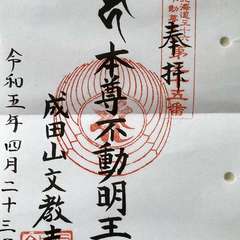 奉拝
第五番
本尊不動明王
成田山文教寺
令和五年四月二十三日